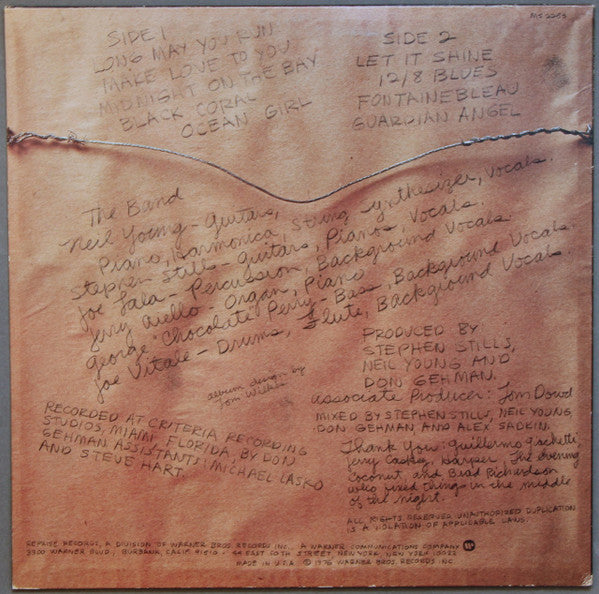 MS 2253
SIDE 1
LONG MAY YOU RUN
MAKE LOVE TO YOU
MIDNIGHT ON THE BAY
BLACK CORAL
OCEAN GIRL
SIDE 2
LET IT SHINE
12/8 BLUES
FONTAINEBLEAU
GUARDIAN ANGEL
The Band
Neil Young - Guitars,
Piano, Harmonica, String Synthesizer, Vocals.
Stephen Stills - Guitars, Pianos, Vocals.
Joe Lala - Percussion, Background Vocals.
Jerry Aiello - Organ, Piano
George "Chocolate" Perry - Bass, Background Vocals.
Joe Vitale - Drums, Flute, Background Vocals.
album design by
Tom Wilkes
PRODUCED BY
STEPHEN STILLS,
NEIL YOUNG AND
DON GEHMAN.
Associate Producer: Tom Dowd
MIXED BY STEPHEN STILLS, NEIL YOUNG,
DON GEHMAN, AND ALEX SADKIN.
RECORDED AT CRITERIA RECORDING
STUDIOS, MIAMI FLORIDA, BY DON
GEHMAN. ASSISTANTS: MICHAEL LASKO
AND STEVE HART
Thank You: Guillermo Giachetti
Jerry Caskey, Harper. The evening
Coconut, and Brad Richardson
who fixed things in the middle
of the night.
ALL RIGHTS RESERVED. UNAUTHORIZED DUPLICATION
IS A VIOLATION OF APPLICABLE LAWS.
REPRISE RECORDS, A DIVISION OF WARNER BROS RECORDS INC., A WARNER COMMUNICATIONS COMPANY
3300 WARNER BLVD., BURBANK, CALIF. 91510 - 44 EAST 50TH STREET, NEW YORK, NEW YORK 10022
MADE IN U.S.A. © 1976 WARNER BROS. RECORDS INC